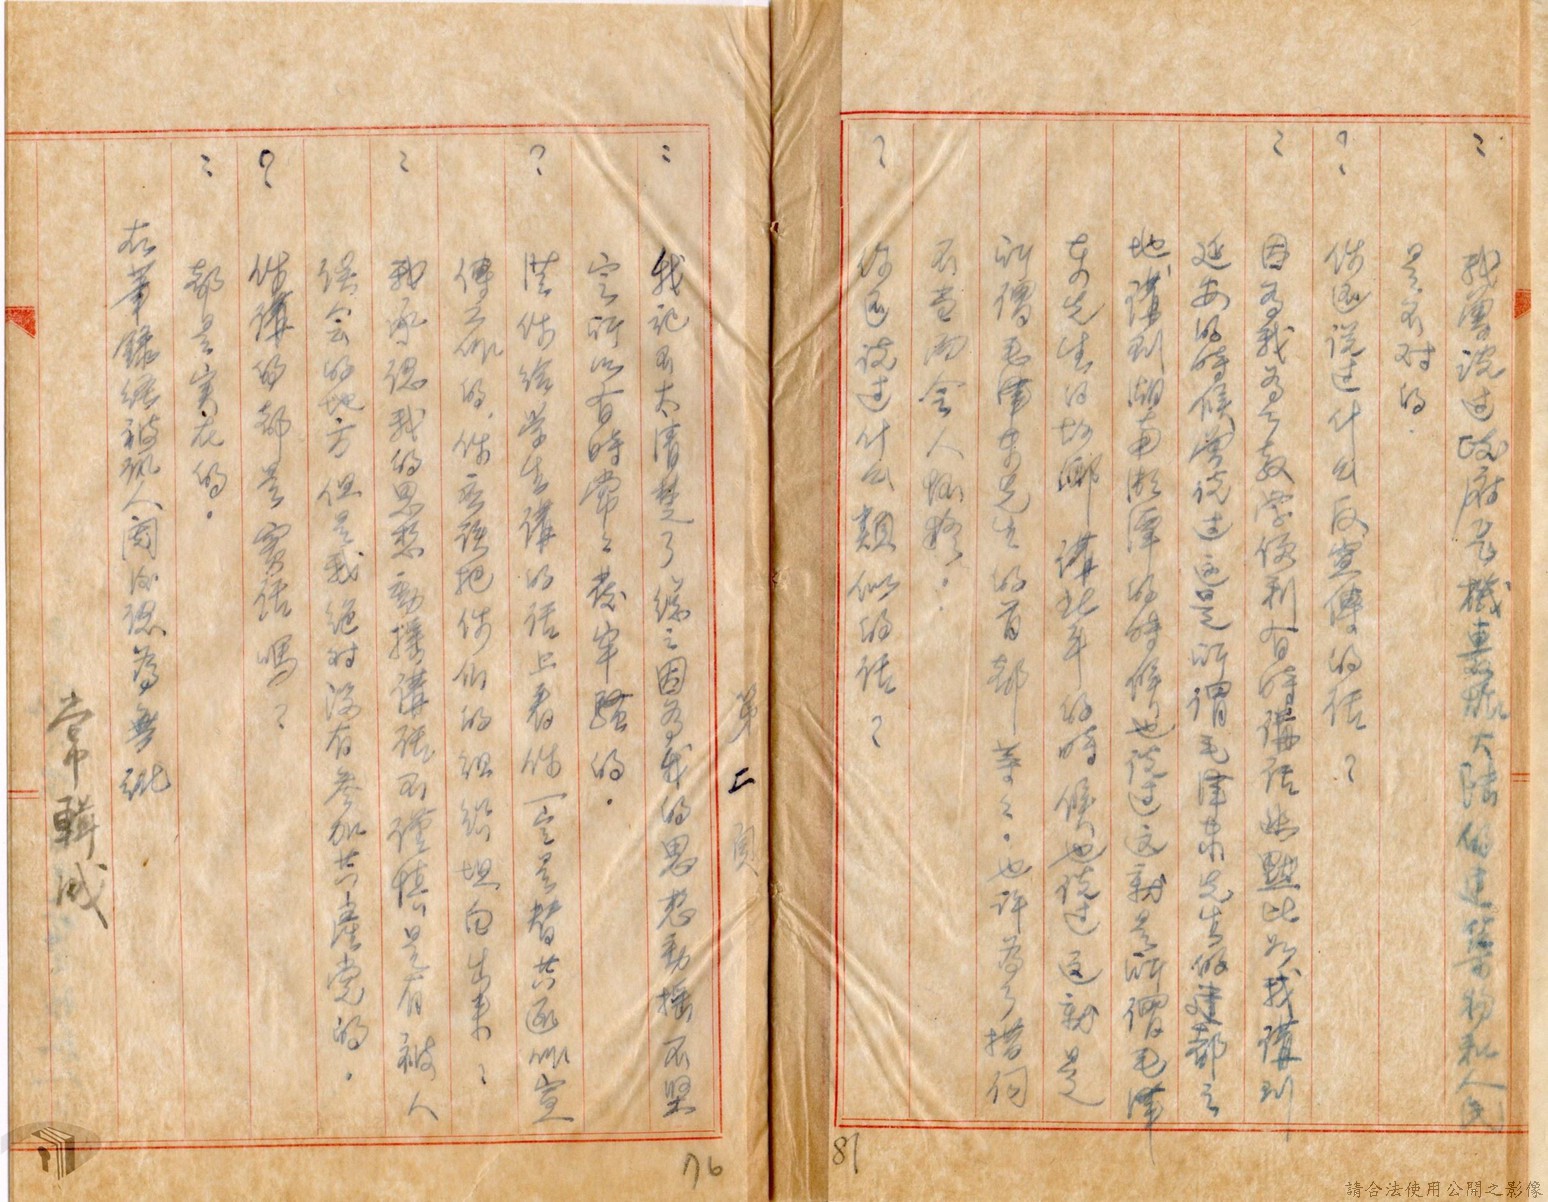 : 我曾說过政府是機轟炸大陸的建築物和人民
是不对的.
? 你还說过什么反宣傳的話?
: 因为我为了教学便利有時講話無點比如我講到
延安的時候曾說过这是所謂毛澤東先生的建都之
地講到湖南湘潭的時候也說过这就是所謂毛澤
東先生的故鄉講北平的時候也說过这就是
所謂毛澤東先生的首都等々.也許为了措伺
不當而令人懷疑.
? 你还說过什么類似的話?
第二頁
: 我記不太清楚了總之因为我的思想動搖不堅
定所以有時常々發牢騷的.
? 從你給学生講的話上看你一定是替共匪做宣
傳工作的.你应該把你們的組織坦白出來?
: 我承認我的思想動搖講話不謹慎是有被人
誤会的地方但是我絕对沒有參加共產党的.
? 你講的都是實話嗎?
: 都是实在的.
右筆錄經被訊人閱後認為無訛
常輯成
76
81
請合法使用公開之影像